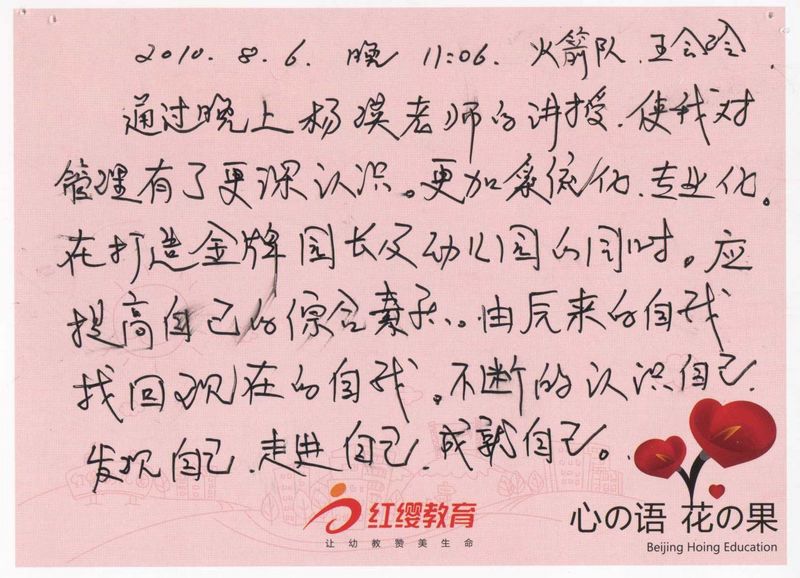 2010. 8. 6. 晚 11:06. 火箭队. 王会玲.
通过晚上杨瑛老师的讲授. 使我对
管理有了更深认识。更加系统化. 专业化。
在打造金牌园长及幼儿园的同时。应
提高自己的综合素质。由后来的自我
找回现在的自我。不断的认识自己.
发现自己. 走进自己. 成就自己。
红缨教育
让幼教赞美生命
心の语 花の果
Beijing Hoing Education